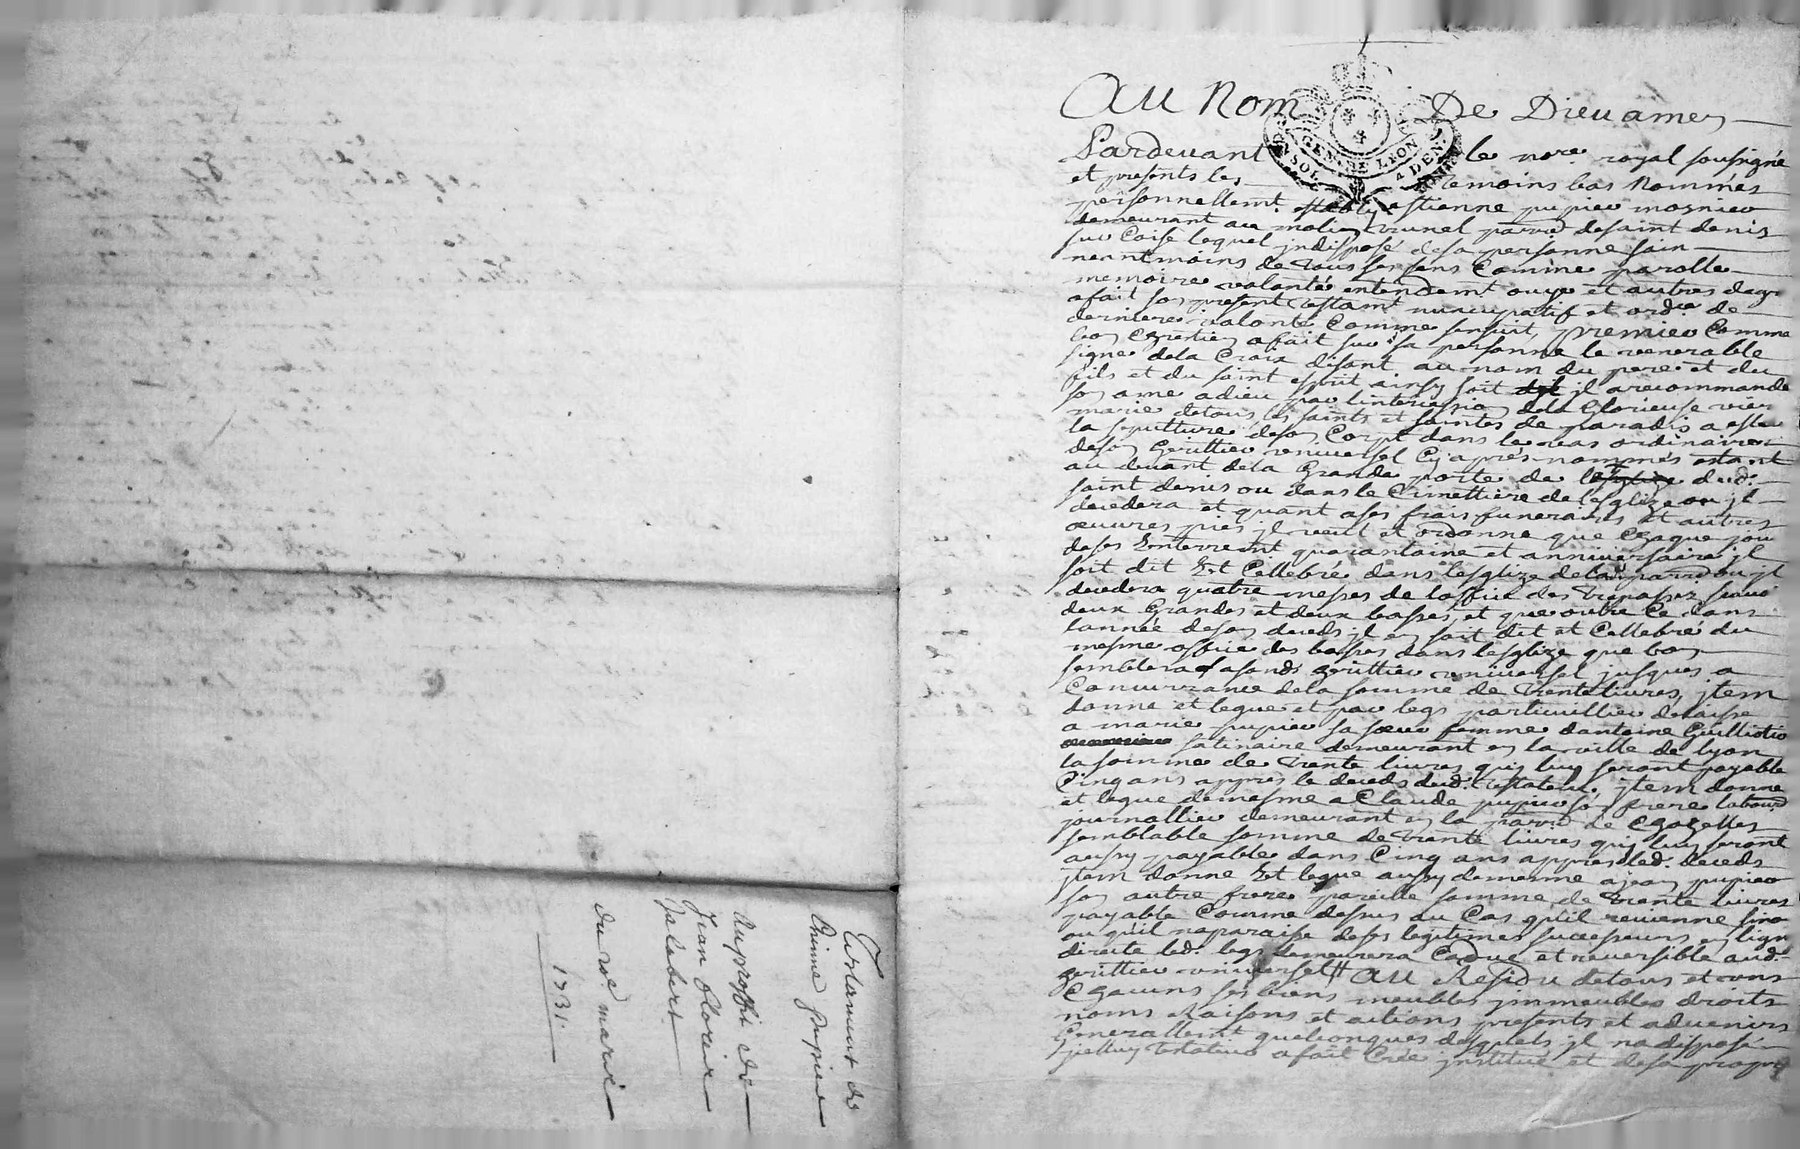 Testament de
Etienne pupieu
Auproffit de
Jean florieu
Jalabert
du 10e. mars
1731.
Au Nom De Dieu amen
GEN DRE LYON
4 DEN
Pardevant le nore. royal soussigné
et presents les temoins bas nommés
personnellemt. estably estienne pupieu mosnieu
demeurant au molin brunel parrd desaint denis
suv Coise lequel indisposé desa personne sain
neantmoins de tous ses sens Comme parolle
memoire volonté entendemt ouye et autres
afait son present testamt nuncupatif et ordre. de
derniere volonté Comme sensuit, premier Comme
bon Chretien afait suv sa personne le venerable
signe dela Croix disant au nom du pere et du
fils et du saint esprit ainsy soit il arecommandé
son ame adieu pav lintercession dela Glorieuse vier
marie detous les saints et saintes de paradis a esleu
la sepulture deson Corpt dans le vas ordinaire
deson herittieu universel Cy apres nommés estant
au devant dela Grande porte de lesglize dud.
saint denis ou dans le Cimettiere de lesglize ou jl
decedera et quant ases frais funeraires et autres
œuvres pies jl veult et ordonne que Chaque jour
deses Enterremt quarantaine et anniversaire jl
soit dit Et Cellebré dans lesglize dela parrd ou jl
decedera quatre messes de loffice des trepassez scavoir
deux Grandes et deux basses, et que outre Ce dans
lannée deson deceds jl en soit dit et Cellebré du
mesme office des basses dans lesglize que bon
semblera asond. herittieu universel jusques a
Concurrance dela somme de trente livres, jtem
donne et legue et pav legs particuillieu delaisse
a marie pupieu sa sœur femme dantoine Guilliotio
satinaire demeurant en la ville de lyon
la somme de trente livres quy luy seront payable
Cinq ans appres le deceds dud. testateur, jtem donne
et legue demesme a Claude pupieu son frere labour
journallieu demeurant en la parrd de Chazelles
semblable somme de trente livres quy luy seront
aussy payable dans Cinq ans appres led. deceds
jtem donne Et legue aussy demesme ajean pupieu
son autre frere pareille somme de trente livres
payable Comme dessus au Cas quil revienne sino
ou quil naparaisse deses legitimes successeurs en lign
directe led. legs demeurera Caduc et reversible aud.
herittieu universel // Au Residu detous et uns
Chacuns ses biens meubles jmmeubles droits
noms Raisons et actions presents et advenirs
Generallemt quelconques desquels jl na disposé
jcelluy testateur a fait Créé jnstitué et desa propre